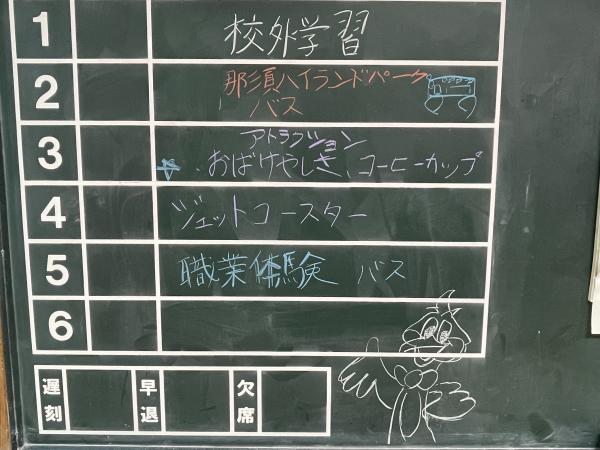 1 校外学習
2 那須ハイランドパーク
バス
3 アトラクション
おばけやしき、コーヒーカップ
4 ジェットコースター
5 職業体験 バス
6
遅刻 早退 欠席